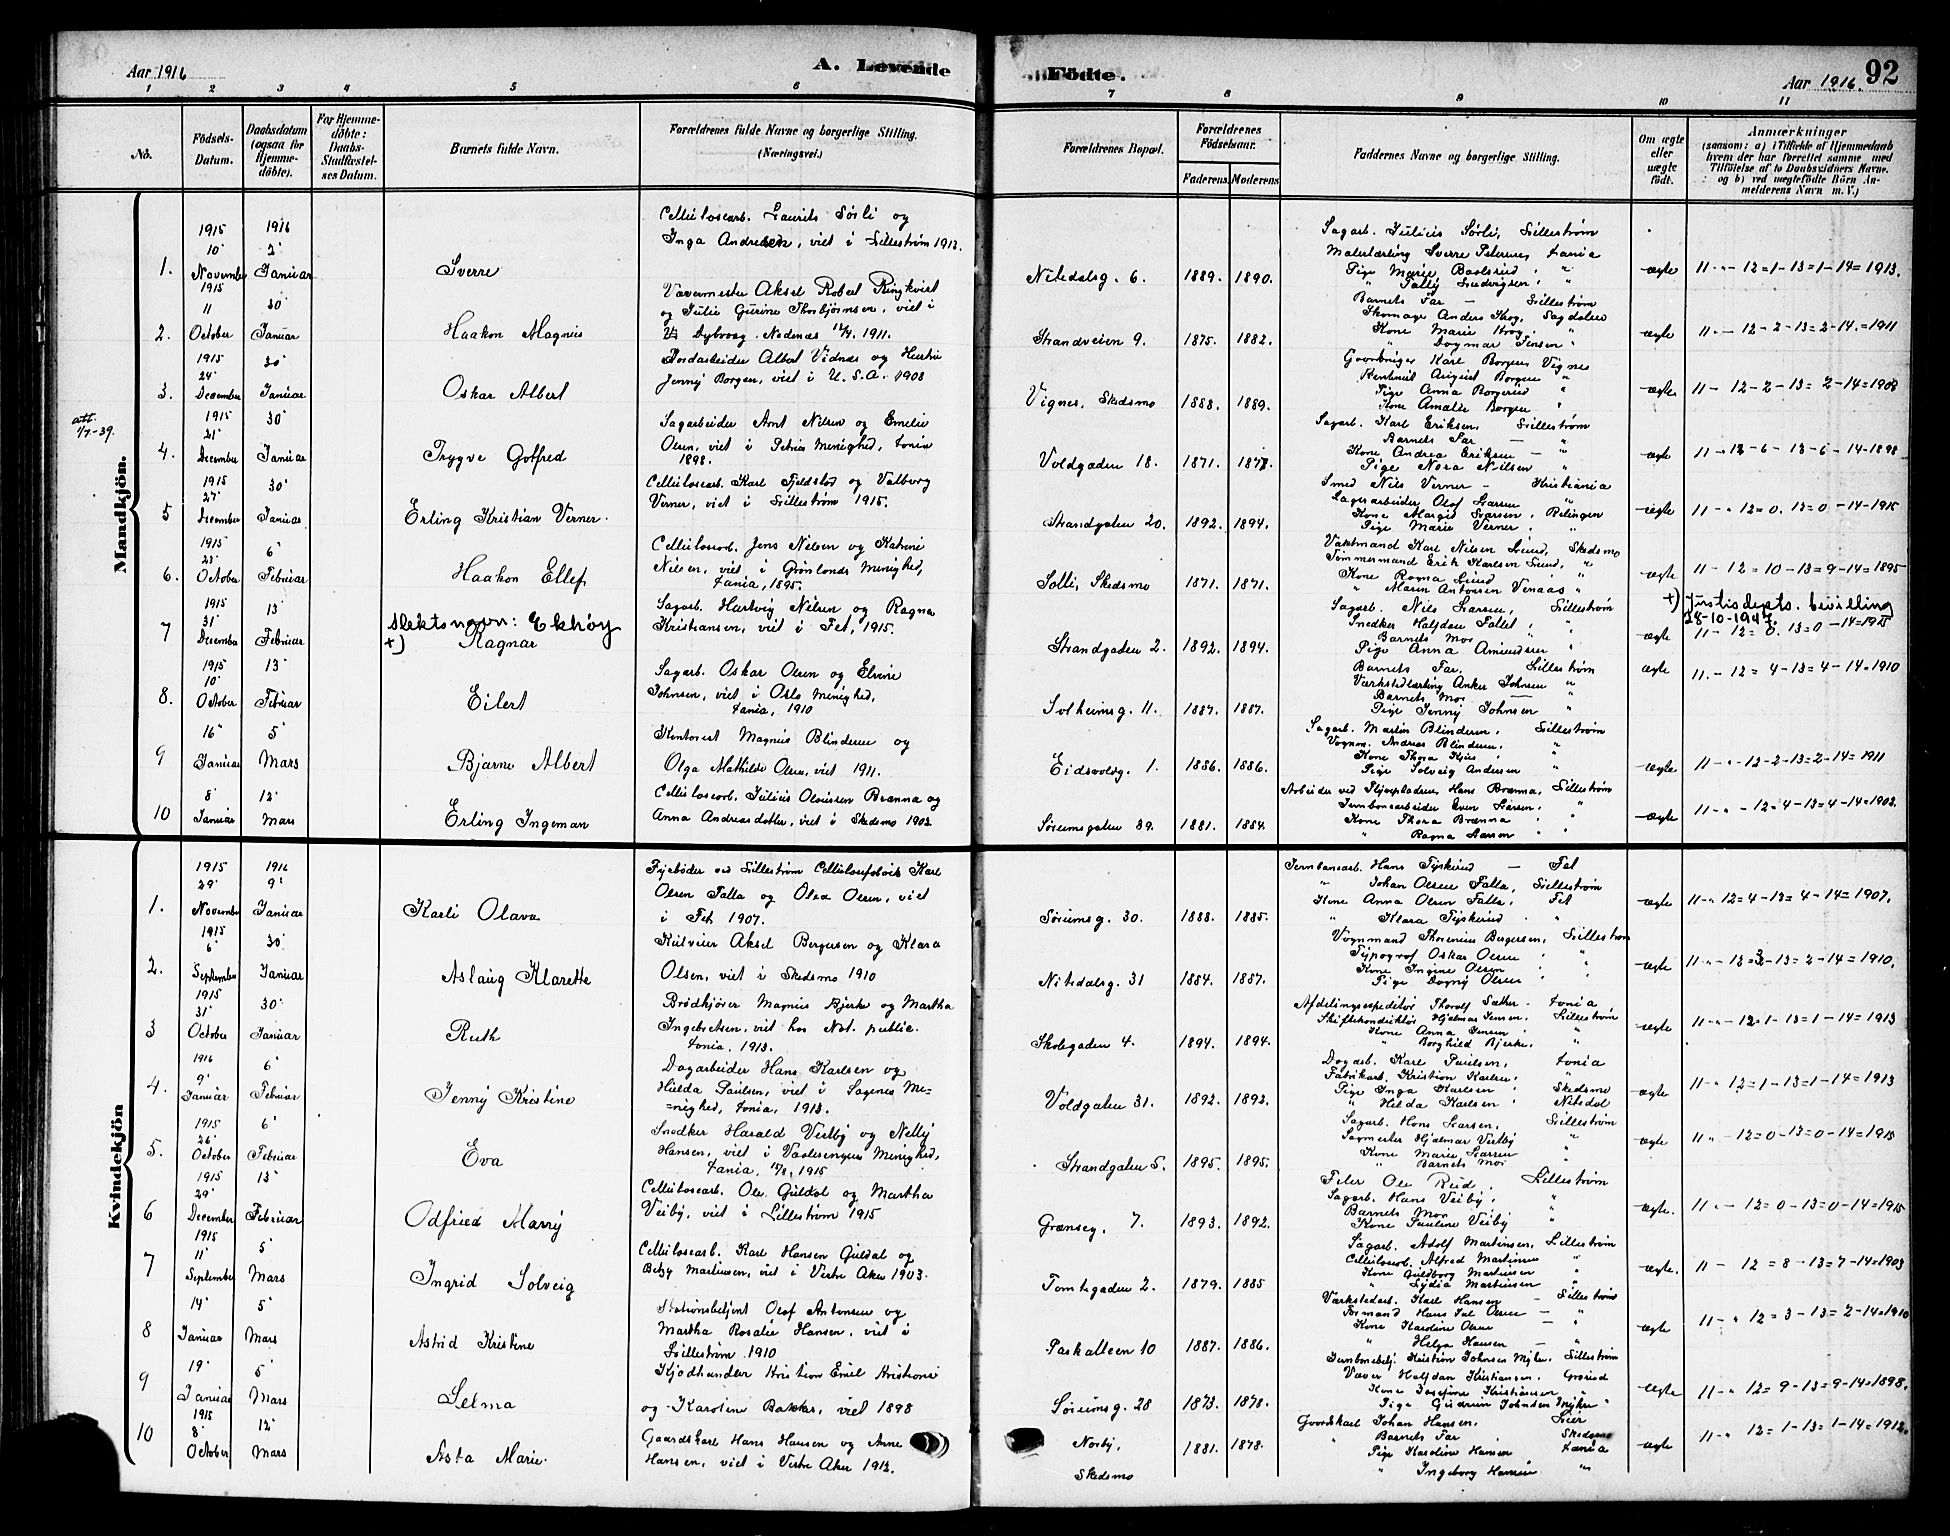 Aar 1916
A. Levende
Födte.
Aar 1916.
92
1 2 3 4 5 6 7 8 9 10 11
No.
Födsels-Datum.
Daabsdatum (ogsaa for Hjemmedöbte).
For Hjemmedöbte: Daabs-Stadfæstelses Datum.
Barnets fulde Navn.
Forældrenes fulde Navne og borgerlige Stilling. (Næringsvei.)
Forældrenes Bopæl.
Forældrenes Födselsaar.
Faderens. Moderens.
Faddernes Navne og borgerlige Stilling.
Om ægte eller uægte födt.
Anmærkninger
(saasom: a) i Tilfælde af Hjemmedaab
hvem der har forrettet samme med
Tilföielse af to Daabsvidners Navne.
og b) ved uægtefödte Börn An-
melderens Navn m. V.)
Mandkjön.
1. 1915 10 November 1916 2 Januar Sverre
Cellulosearb. Laurits Sørli og
Inga Andresen, viet i Lillestrøm 1913.
Nitedalsg. 6. 1889. 1890.
Sagarb. Julius Sørli, Lillestrøm
ægte 11 - 12=1-13=1-14=1913.
2. 1915 11 October 30 Januar Haakon Magnus
Værvmester Aksel Robert Ringkvist
og Julie Gurine Thorbjørnsen, viet i
Dybvaag. Nedenæs 1911.
Strandveien 9. 1875. 1882.
Barnets Far - Lillestrøm
Kone Marie Krog.
Dagmar Jensen
ægte 11 - 12-2-13=2-14=1911
3. 1915 24 December 30 Januar Oskar Albert
Jordarbeider Albert Vidnæs og
Jenny Borgen, viet i U.S.A. 1908
Vignes, Skedsmo 1888. 1889.
Gaardbruger Karl Borgen Vignes
Rentenist August Borgen
Pige Anna Borgerud
Kone Amalie Borgen
ægte 11 - 12-2-13=2-14=1908
att. 1/7-39.
4. 1915 21 December 30 Januar Trygve Gotfred
Sagarbeider Arnt Nilsen og Emelie
Olsen, viet i Petrus Menighed,
1898.
Voldgaden 18. 1871.
Sagarb. Karl Eriksen, Lillestrøm
Barnets Far
Kone Andrea Eriksen
Pige Nora Nilsen
ægte 11 - 12-6-13-6-14-1898
5 1915 27 December 30 Januar Erling Kristian Verner.
Cellulosearb. Karl Fjeldstad og Valborg
Verner, viet i Lillestrøm 1915.
Strandgaten 20. 1892. 1894.
Smed Nils Verner - Kristiania
Lagerarbeider Olof Larsen
Kone Margit Larsen, Rælingen
Pige Marie Verner.
ægte 11 - 12=0. 13=0 -14=1915
6. 1915 23 October 6 Februar Haakon Ellef
Cellulosearb. Jens Nilsen og Katrine
Nilsen, viet i Grønlands Menighed,
1895.
Solli, Skedsmo 1871. 1871.
Vaktmand Karl Nilsen Lund, Skedsmo
Tømmermand Erik Karlsen Lund,
Kone Ragna Lund
Maren Antonsen Venaas
ægte 11 - 12=10-13=9-14=1895
7 1915 31 December 13 Februar
slektsnavn: Ekhøy
+) Ragnar
Sagarb. Hartvig Nilsen og Ragna
Kristiansen, viet i Fet, 1915.
Strandgaten 2. 1892. 1894.
Sagarb. Nils Larsen, Lillestrøm
Snedker Halfdan Fallet
Barnets Mor
Pige Anna Amundsen
+) Justisdepts. bevilling
28-10-1947.
ægte 11 - 12=0. 13=0 -14=1915
8. 1915 10 October 13 Februar Eilert
Sagarb. Oskar Olsen og Elvine
Johnsen, viet i Oslo Menighed,
1910
Solheimsg. 11. 1887. 1887.
Barnets Far, Lillestrøm
Værkstedlærling Anker Johnsen
Barnets Mor
Pige Jenny Johnsen
ægte 11 - 12=4-13=4-14=1910
9 16 Januar 5 Mars Bjarne Albert
Kontorist Magnus Blinderen og
Olga Mathilde Olsen, viet 1911.
Eidsvoldg. 1. 1886. 1886.
Sagarb. Martin Blinderen, Lillestrøm
Vognm. Andreas Blinderen,
Pige Solveig Andersen
ægte 11 - 12-2-13=2-14=1911
10 8 Januar 12 Mars Erling Ingeman
Cellulosearb. Julius Olausen Brænna og
Anna Andreasdatter, viet i Skedsmo 1903.
Sørumsgaten 39. 1881. 1884.
Hans Brænna, Lillestrøm
Jernbanearbeider Even Larsen.
Kone Thora Brænna
Ragna Larsen
ægte 11 - 12=4-13=4-14=1903.
Kvindekjön
1. 1915 29 November 1916 9 Januar Karli Olava
Fyrbøder ved Lillestrøm Cellulosefabrik Karl
Olsen Falla og Olea Olsen, viet
i Fet 1907.
Sørumsg. 30. 1888. 1885.
Jernbanearb. Hans Tyskerud - Fet
Johan Olsen Falla, Lillestrøm
Kone Anna Olsen Falla, Fet
Klara Tyskerud
ægte 11 - 12=4-13=4-14=1907.
2. 1915 6 September 30 Januar Aslaug Klarette
Aksel Bergersen og Klara
Olsen, viet i Skedsmo 1910
Nitedalsg. 31 1884. 1887.
Vognmand Thorenius Bergersen, Lillestrøm
Typograf Oskar Olsen
Kone Ingine Olsen
Pige Dagny Olsen
ægte 14=1910.
3 1915 31 October 30 Januar Ruth
Brødkjører Magnus Bjerke og Martha
Ingebretsen, viet hos Not. public.
1913.
Skolegaden 4. 1894. 1894.
Afdelingsexpeditør Thorolf Sæther.
Skiftekonduktør Hjalmar Jensen. Lillestrøm
Kone Anna Jensen
Borghild Bjerke
ægte 11 - 12=1-13=1-14=1913
4. 1916 9 Januar 6 Februar Jenny Kristine
Dagarbeider Hans Karlsen og
Hilda Paulsen, viet i Sagenes Me-
=nighed, 1913.
Voldgaten 31. 1892. 1892.
Dagarb. Karl Paulsen,
Fabrikarb. Kristian Karlsen
Pige Inga Karlsen Skedsmo
Hilda Karlsen Nitedal
ægte 11 - 12=1-13=1-14=1913
5. 1915 26 October 6 Februar Eva
Snedker Harald Vestby og Nelly
Hansen, viet i Vaalerengens Menighed,
1915
Strandgaten 5. 1895. 1895.
Sagarb. Hans Larsen, Lillestrøm
Sagmester Hjalmar Vestby
Kone Marie Larsen
Barnets Mor
ægte 11 - 12=0-13=0-14=1915
6 1915 29 December 13 Februar Odfried Marry
Cellulosearb. Ole Guldal og Martha
Veiby, viet i Lillestrøm 1915
Grænseg. 7. 1893. 1892.
Filer Ole Rud. Lillestrøm
Sagarb. Hans Veiby
Barnets Mor
Kone Pauline Veiby
ægte. 11 - 12=0-13=0-14=1915
7 1915 11 September 5 Mars Ingrid Solveig
Cellulosearb. Karl Hansen Guldal og
Betzy Martinsen, viet i Vestre Aker 1903.
Tomtegaden 2. 1879. 1885
Sagarb. Adolf Martinsen, Lillestrøm
Cellulosearb. Alfred Martinsen
Kone Guldborg Martinsen
Lydia Martinsen
ægte. 11 - 12=8-13=7-14=1903
8 14 Januar 5 Mars Astrid Kristine
Stationsbetjent Olof Antonsen og
Martha Rosalie Hansen, viet i
Lillestrøm 1910
Paskalleen 10 1887. 1886.
Værkstedarb. Karl Hansen - Lillestrøm
Kone Karoline Olsen
Helga Hansen
ægte 11 - 12=3-13=2-14=1910
9 19 Januar 5 Mars Selma
Kjødhandler Kristian Emil Kristians
og Karoline Bakkas, viet 1898
Sørumsg. 28 1873. 1878.
Kristian Johnsen Myhre. Lillestrøm
Væver Halfdan Kristiansen. Grorud
Kone Josefine Kristiansen
Pige Gudrun Johnsen Myhre
ægte 11 - 12=9-13=9-14=1898.
10 1915 8 October 12 Mars Asta Marie.
Gaardskarl Hans Hansen og Anne
Hansen, viet i Vestre Aker 1912.
Norby, Skedsmo 1881. 1878.
Gaardskarl Johan Hansen. Lier
Barnets Far Skedsmo
Pige Karoline Hansen
Ingeborg Hansen
ægte 11 - 12=1-13=1-14=1912.